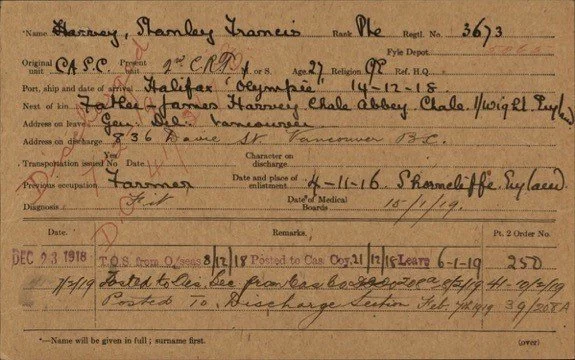 *Name Harvey, Stanley Francis Rank Pte Regtl. No. 3673
Fyle Depot
Original unit C.A.S.C. Present unit 2nd C.R.D. M. or S. Age 27 Religion CE Ref. H.Q.
Port, ship and date of arrival Halifax "Olympic" 14-12-18.
Next of kin Father - James Harvey Chale Abbey, Chale. I/Wight Eng
Address on leave Gen. Del. Vancouver
Address on discharge 836 Davie St. Vancouver B.C.
Transportation issued Yes No Date Character on discharge
Previous occupation Farmer Date and place of enlistment 4-11-16 Shorncliffe Eng
Diagnosis Fit Date of Medical Boards 15/1/19.
Discharged
Date. Remarks. Pt. 2 Order No.
DEC 23 1918 T.O.S. from O/seas 8/12/18 Posted to Cas. Coy. 21/12/18 Leave 6-1-19 250
7/2/19 Posted to Dis. Sec. from Cas. Co. 41-10/2/19
Posted To Discharge Section Feb. 7th 1919 39/208A
*—Name will be given in full; surname first. (over)